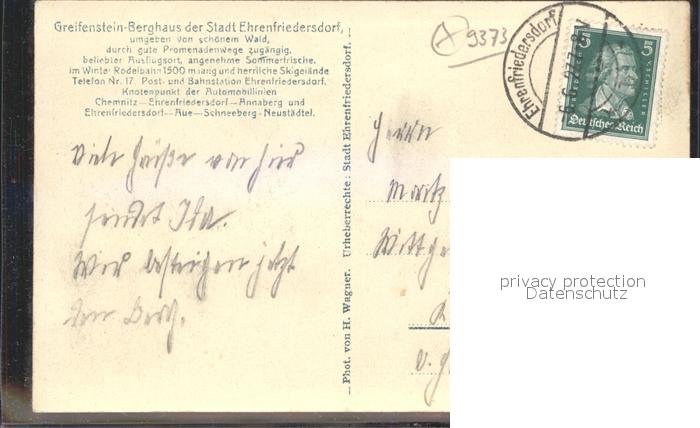 Greifenstein-Berghaus der Stadt Ehrenfriedersdorf,
umgeben von schönem Wald,
durch gute Promenadenwege zugängig,
beliebter Ausflugsort, angenehme Sommerfrische.
im Winter Rodelbahn 1500 m lang und herrliche Skigelände
Telefon Nr. 17. Post- und Bahnstation Ehrenfriedersdorf.
Knotenpunkt der Automobillinien
Chemnitz—Ehrenfriedersdorf—Annaberg und
Ehrenfriedersdorf—Aue—Schneeberg-Neustädtel.
Viele Grüße von hier
sendet Ida.
Wir besteigen jetzt
den Berg.
Phot. von H. Wagner. Urheberrechte: Stadt Ehrenfriedersdorf.
A 9373
Ehrenfriedersdorf
5 5
Deutsches Reich
Herrn
Moritz
privacy protection
Datenschutz